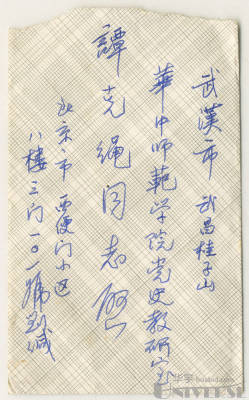 武漢市 武昌桂子山
華中师範学院党史教研室
譚克绳同志啓
北京市 西便门小区
八楼三门一〇一號 劉緘
华宇 huabid.com
UNIVERSE